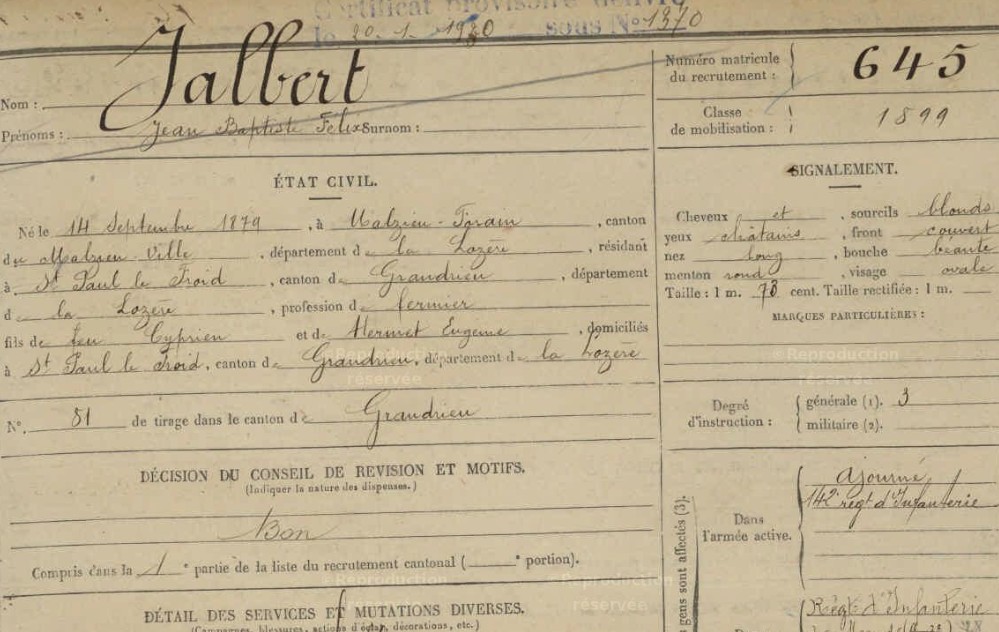 Certificat provisoire délivré
le 20. 1. 1930 sous No 1370
Nom : Jalbert
Prénoms : Jean Baptiste Félix Surnom :
Numéro matricule du recrutement : 645
Classe de mobilisation : 1899
ÉTAT CIVIL.
Né le 14 Septembre 1879, à Malzieu-Forain, canton
du Malzieu-Ville, département de la Lozère, résidant
à St Paul le Froid, canton de Grandrieu, département
de la Lozère, profession de fermier
fils de feu Cyprien et de Hermet Eugénie, domiciliés
à St Paul le Froid, canton de Grandrieu, département de la Lozère
N° 81 de tirage dans le canton de Grandrieu
DÉCISION DU CONSEIL DE REVISION ET MOTIFS.
(Indiquer la nature des dispenses.)
Bon
Compris dans la 1e partie de la liste du recrutement cantonal ( e portion).
DÉTAIL DES SERVICES ET MUTATIONS DIVERSES.
(Campagnes, blessures, actions d'éclat, décorations, etc.)
SIGNALEMENT.
Cheveux et, sourcils blonds
yeux châtains, front couvert
nez long, bouche béante
menton rond, visage ovale
Taille : 1 m. 73 cent. Taille rectifiée : 1 m.
MARQUES PARTICULIÈRES :
Degré d'instruction : générale (1). 3
militaire (2).
gens sont affectés (3).
Dans l'armée active.
ajourné
142e régt d'Infanterie
Régt d'Infanterie
Reproduction réservée
Reproduction
Reproduction réservée
Reproduction réservée